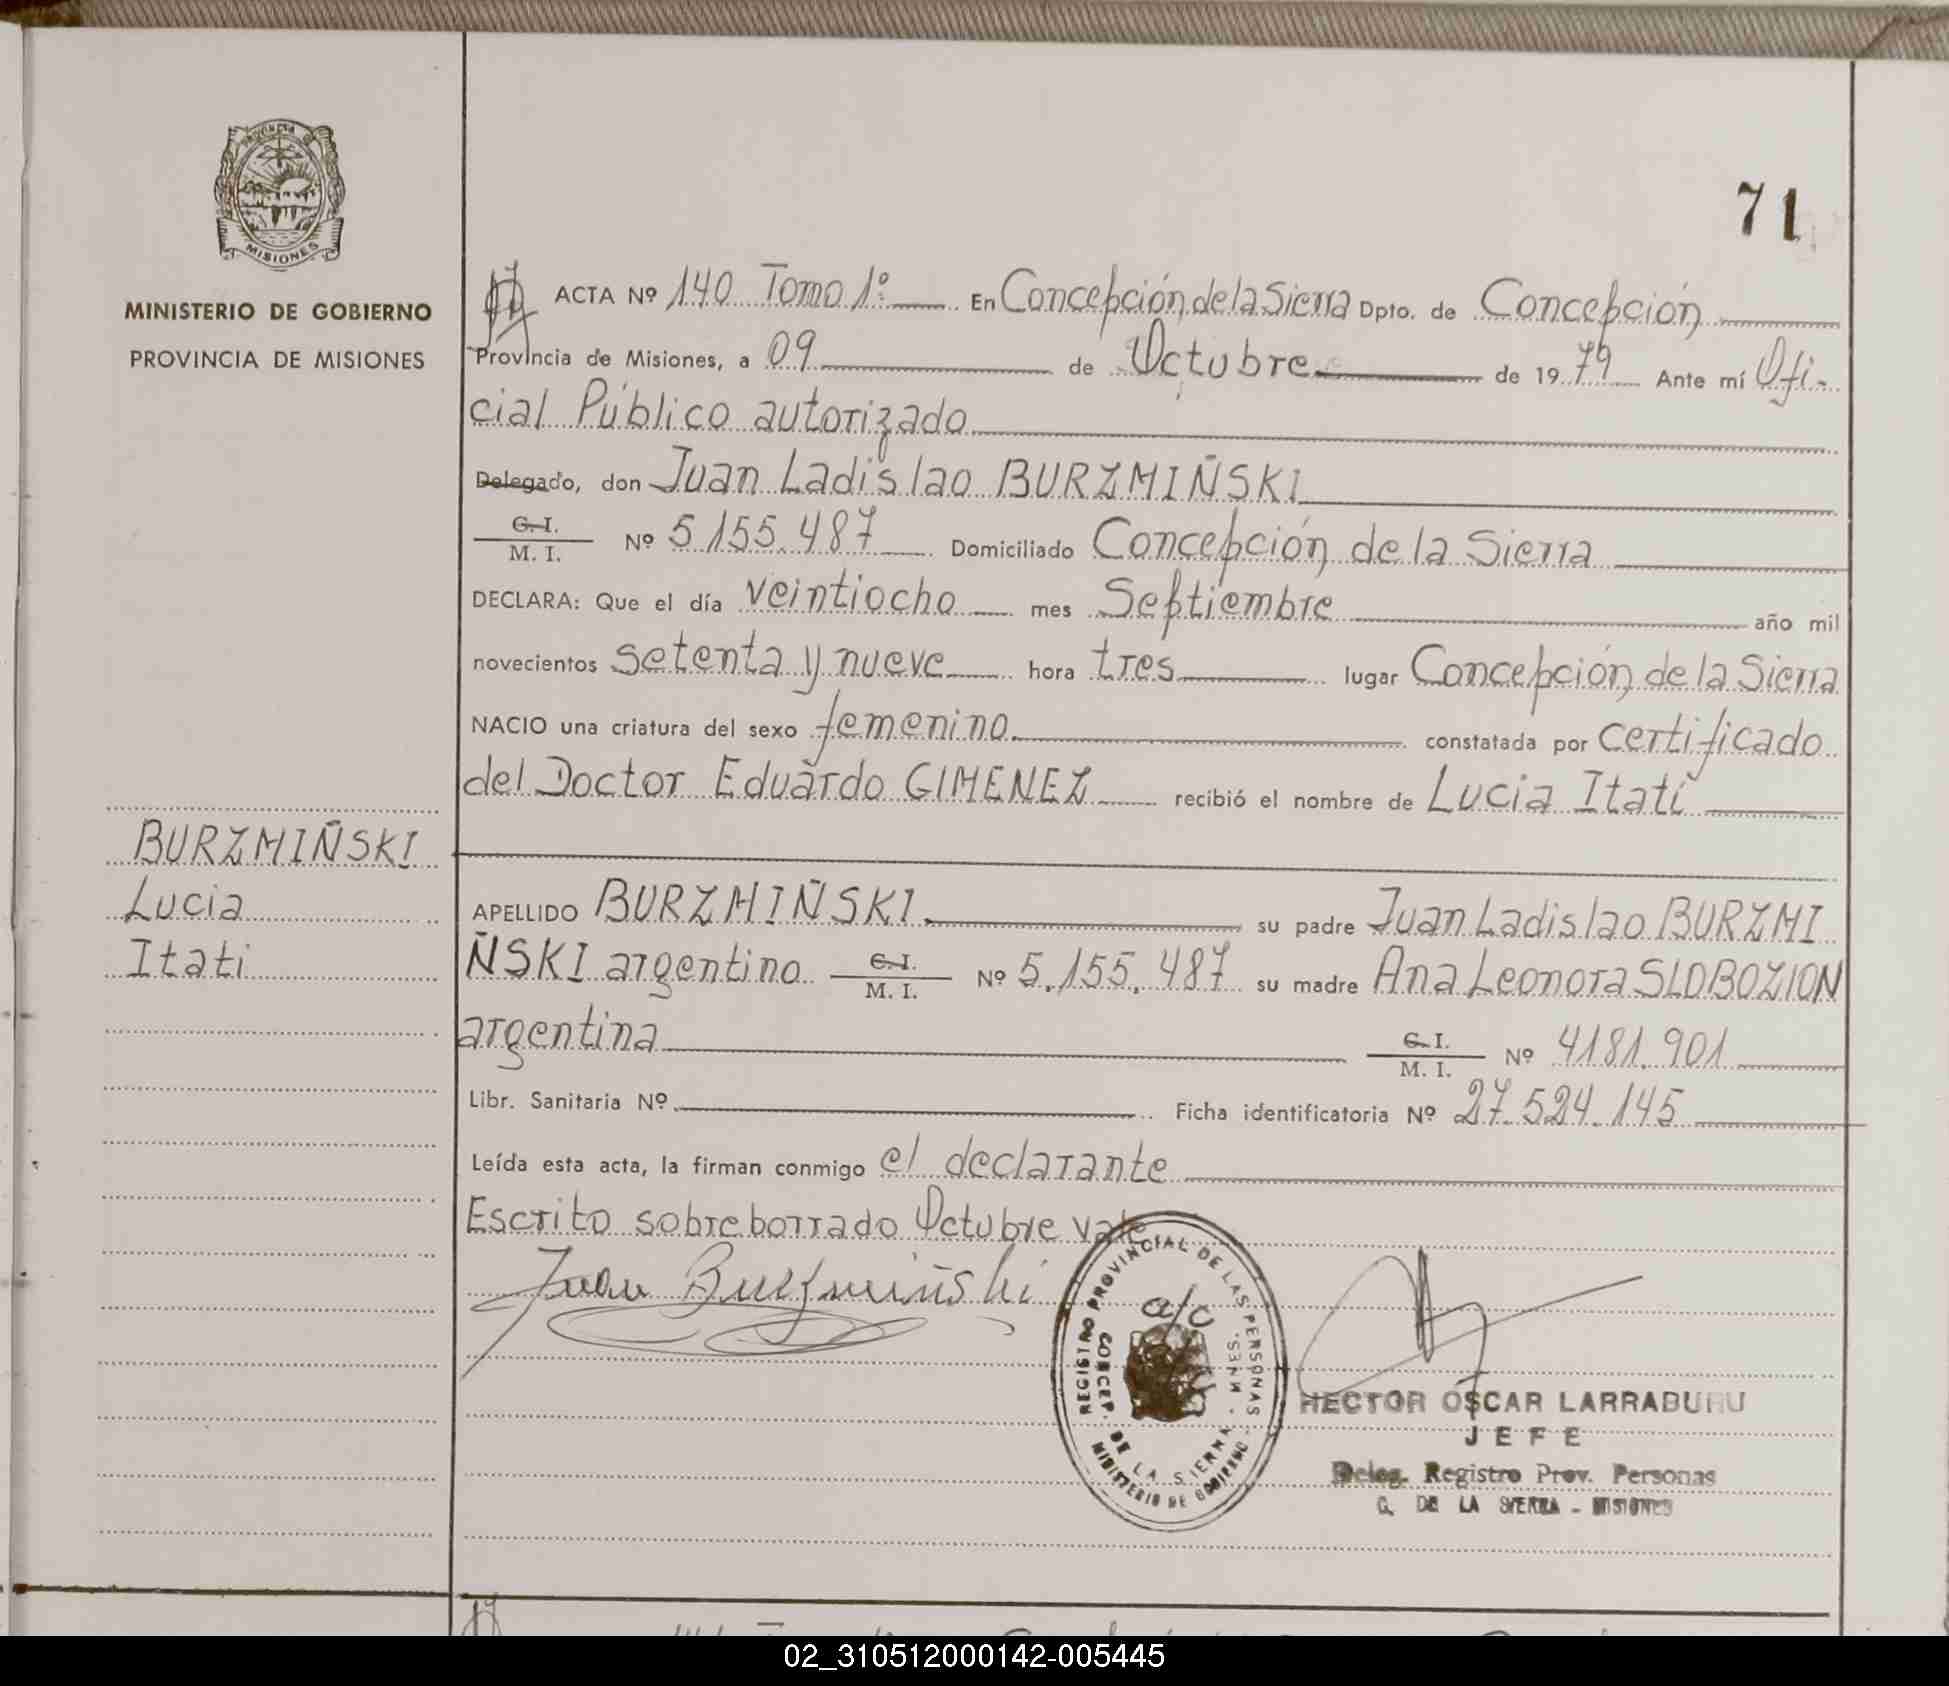 PROVINCIA DE
MISIONES
MINISTERIO DE GOBIERNO
PROVINCIA DE MISIONES
BURZMIÑSKI
Lucia
Itati
71
ACTA Nº 140 Tomo 1º En Concepción de la Sierra Dpto. de Concepción
Provincia de Misiones, a 09 de Octubre de 1979 Ante mí Ofi-
cial Público autorizado
Delegado, don Juan Ladislao BURZMIÑSKI
C. I.
M. I. Nº 5.155.487 Domiciliado Concepción de la Sierra
DECLARA: Que el día veintiocho mes Septiembre año mil
novecientos setenta y nueve hora tres lugar Concepción de la Sierra
NACIO una criatura del sexo femenino constatada por certificado
del Doctor Eduardo GIMENEZ recibió el nombre de Lucia Itatí
APELLIDO BURZMIÑSKI su padre Juan Ladislao BURZMI
ÑSKI argentino C. I. M. I. Nº 5.155.487 su madre Ana Leonora SLOBOZION
argentina C. I. M. I. Nº 4181.901
Libr. Sanitaria Nº Ficha identificatoria Nº 27.524.145
Leída esta acta, la firman conmigo el declarante
Escrito sobreborrado Octubre vale
Juan Burzmiñski
REGISTRO PROVINCIAL DE LAS PERSONAS
a/c
CONCEP. DE LA SIERRA - MNES.
MINISTERIO DE GOBIERNO
HECTOR OSCAR LARRABURU
JEFE
Deleg. Registro Prov. Personas
C. DE LA SIERRA - MISIONES
02_310512000142-005445